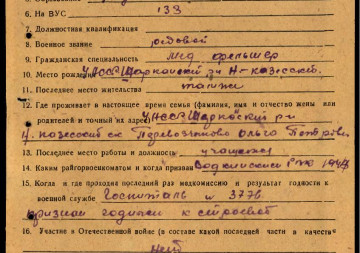 6. На ВУС 133
7. Должностная квалификация
8. Военное звание рядовой
9. Гражданская специальность мед фельшер
10. Место рождения УАССР Шарканский
11. Последнее место жительства также
12. Где проживает в настоящее время семья (фамилия, имя и отчество жены или
родителей и точный их адрес) УАССР Шарканский р-н
Ольга
13. Последнее место работы и должность учащаяся
14. Каким райгорвоенкоматом и когда призван Воткинский РВК
15. Когда и где проходил последний раз медкомиссию и результат годности к
военной службе Госпиталь № 3778.
признан годным к строевой
16. Участие в Отечественной войне (в составе какой последней части в качестве
Нет